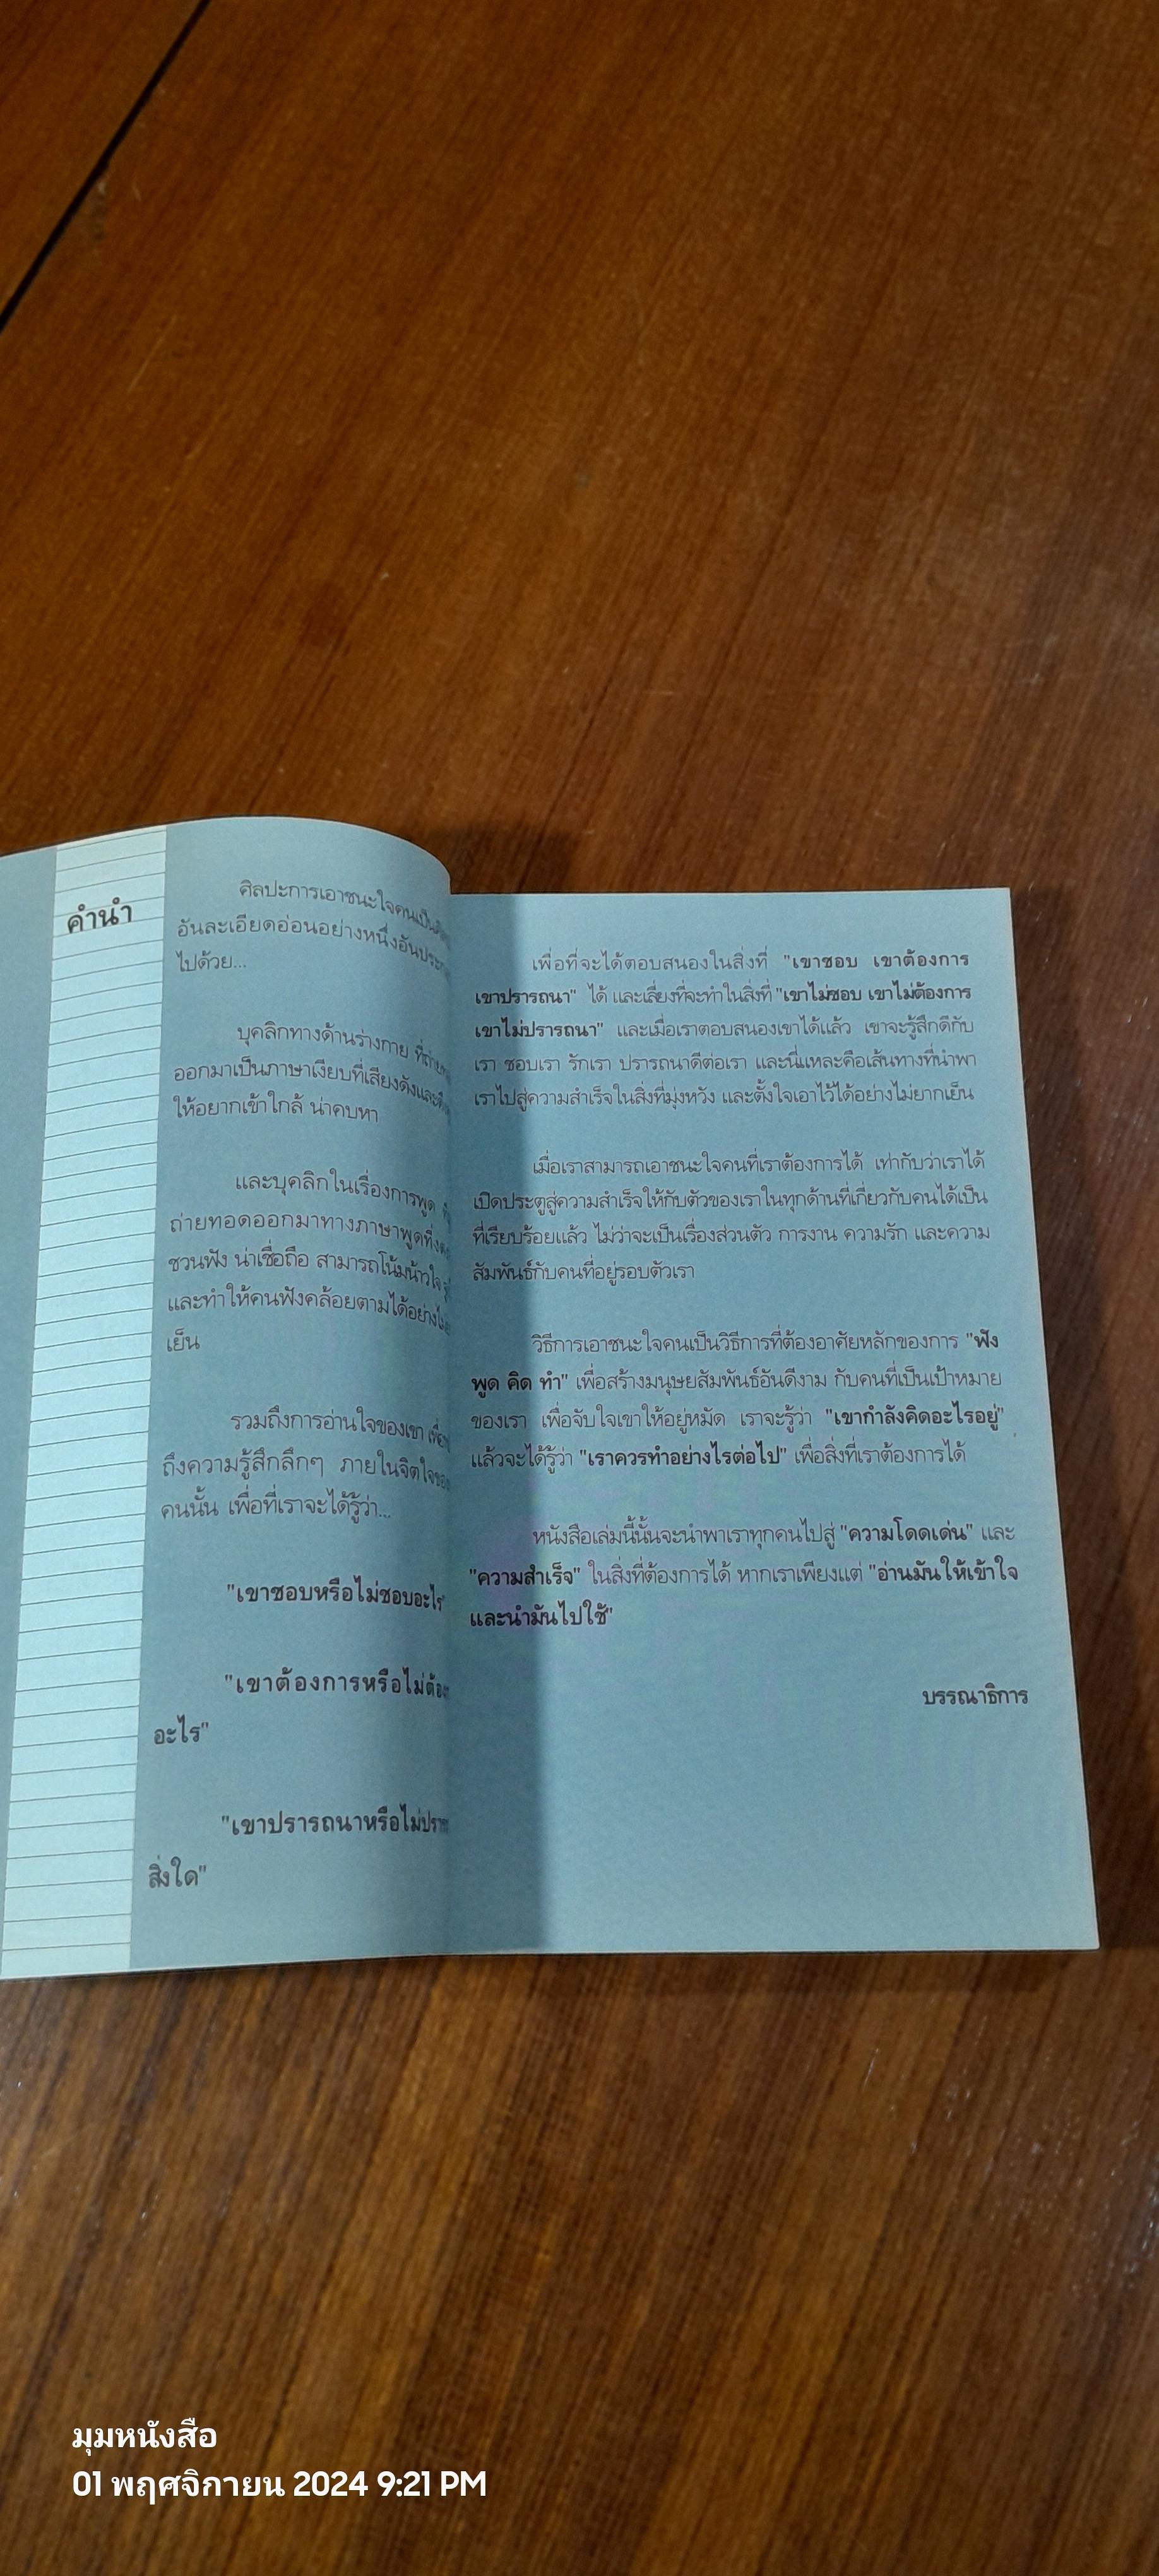 คำนำ
ศิลปะการเอาชนะใจคนเป็น
อันละเอียดอ่อนอย่างหนึ่งอัน
ไปด้วย...
บุคลิกทางด้านร่างกาย
ออกมาเป็นภาษาเงียบที่เสียงดังและ
ให้อยากเข้าใกล้ น่าคบหา
และบุคลิกในเรื่องการพูด
ถ่ายทอดออกมาทางภาษาพูดที่
ชวนฟัง น่าเชื่อถือ สามารถโน้มน้าวใจ
และทำให้คนฟังคล้อยตามได้อย่าง
เย็น
รวมถึงการอ่านใจของเขา
ถึงความรู้สึกลึกๆ ภายในจิตใจ
คนนั้น เพื่อที่เราจะได้รู้ว่า...
"เขาชอบหรือไม่ชอบอะไร"
"เขาต้องการหรือไม่
อะไร"
"เขาปรารถนาหรือไม่
สิ่งใด"
เพื่อที่จะได้ตอบสนองในสิ่งที่ "เขาชอบ เขาต้องการ
เขาปรารถนา" ได้ และเลี่ยงที่จะทำในสิ่งที่ "เขาไม่ชอบ เขาไม่ต้องการ
เขาไม่ปรารถนา" และเมื่อเราตอบสนองเขาได้แล้ว เขาจะรู้สึกดีกับ
เรา ชอบเรา รักเรา ปรารถนาดีต่อเรา และนี่แหละคือเส้นทางที่นำพา
เราไปสู่ความสำเร็จในสิ่งที่มุ่งหวัง และตั้งใจเอาไว้ได้อย่างไม่ยากเย็น
เมื่อเราสามารถเอาชนะใจคนที่เราต้องการได้ เท่ากับว่าเราได้
เปิดประตูสู่ความสำเร็จให้กับตัวของเราในทุกด้านที่เกี่ยวกับคนได้เป็น
ที่เรียบร้อยแล้ว ไม่ว่าจะเป็นเรื่องส่วนตัว การงาน ความรัก และความ
สัมพันธ์กับคนที่อยู่รอบตัวเรา
วิธีการเอาชนะใจคนเป็นวิธีการที่ต้องอาศัยหลักของการ "ฟัง
พูด คิด ทำ" เพื่อสร้างมนุษยสัมพันธ์อันดีงาม กับคนที่เป็นเป้าหมาย
ของเรา เพื่อจับใจเขาให้อยู่หมัด เราจะรู้ว่า "เขากำลังคิดอะไรอยู่"
แล้วจะได้รู้ว่า "เราควรทำอย่างไรต่อไป" เพื่อสิ่งที่เราต้องการได้
หนังสือเล่มนี้นั้นจะนำพาเราทุกคนไปสู่ "ความโดดเด่น" และ
"ความสำเร็จ" ในสิ่งที่ต้องการได้ หากเราเพียงแต่ "อ่านมันให้เข้าใจ
และนำมันไปใช้"
บรรณาธิการ
มุมหนังสือ
01 พฤศจิกายน 2024 9:21 PM